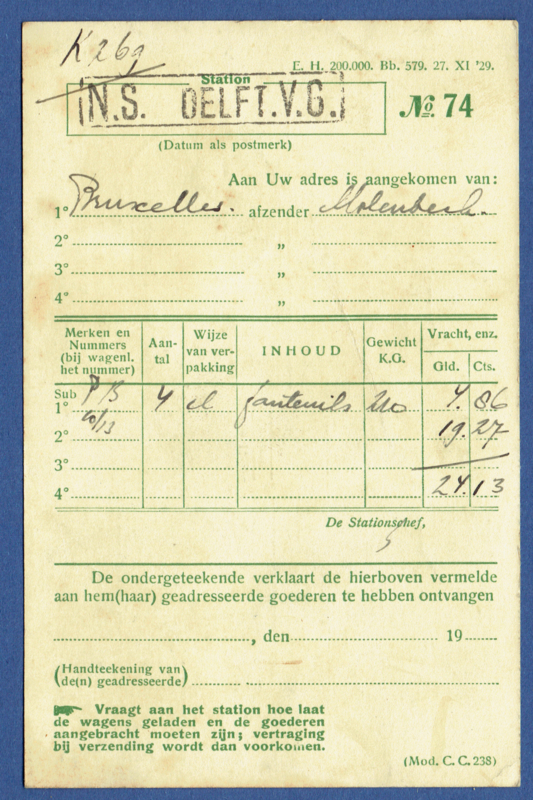 K 269
E. H. 200.000. Bb. 579. 27. XI '29.
Station
N.S. DELFT.V.G.
№ 74
(Datum als postmerk)
Aan Uw adres is aangekomen van:
1° Bruxelles. afzender Molenbeek.
2° „
3° „
4° „
Merken en Nummers (bij wagenl. het nummer) Aantal Wijze van verpakking INHOUD Gewicht K.G. Vracht, enz. Gld. Cts.
Sub 1° PB 4 fauteuils 4. 86
10/13
2° 19. 27
3°
4° 24.13
De Stationschef,
De ondergeteekende verklaart de hierboven vermelde
aan hem(haar) geadresseerde goederen te hebben ontvangen
, den 19
(Handteekening van
de(n) geadresseerde)
Vraagt aan het station hoe laat
de wagens geladen en de goederen
aangebracht moeten zijn; vertraging
bij verzending wordt dan voorkomen.
(Mod. C. C. 238)